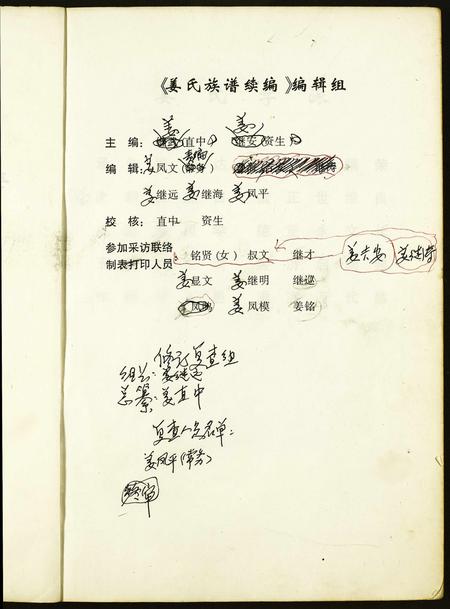 《姜氏族谱续编》编辑组
姜 姜
主 编： (直中) 继安(资生)
编 辑：姜凤文(常务)
姜继远 姜继海 姜凤平
校 核： 直中 资生
参加采访联络
制表打印人员
铭贤(女) 叔文 继才
姜显文 姜继明 继巡
姜凤模 姜铭
修订复查组
组长：姜继远
总纂：姜直中
复查人员名单：
姜凤平(常务)
终审